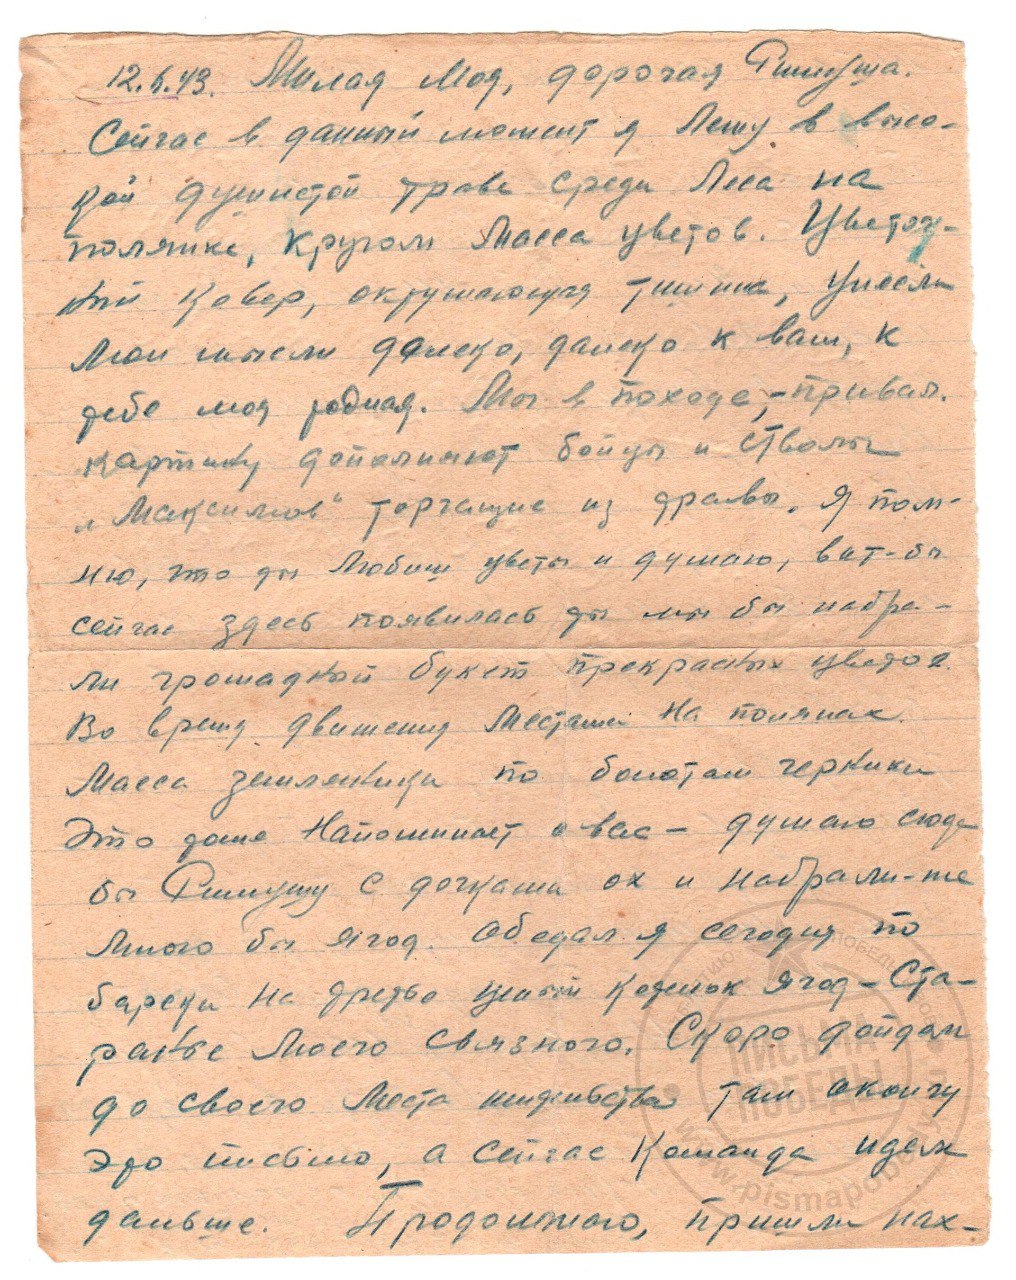 12.6.43. Милая моя, дорогая Римуша.
Сейчас в данный момент я лежу в высо-
кой душистой траве среди леса на
полянке, кругом масса цветов. Цветоч-
ный ковер, окружающая тишина, унесли
мои мысли далеко, далеко к вам, к
тебе моя родная. Мы в походе, - привал.
Картину дополняют бойцы и стволы
"Максимов" торчащие из травы. Я пом-
ню, что ты любиш цветы и думаю, вот-бы
сейчас здесь появилась ты мы бы набра-
ли громадный букет прекрасных цветов
Во время движения местами на полянах
масса земляники по болотам черники
Это тоже напоминает о вас - думаю сюда
бы Римушу с дочками ох и набрали-же
много бы ягод. Обедал я сегодня по
барски на третье целый котелок ягод - Ста-
ранье моего связного. Скоро дойдем
до своего места там окончу
это письмо, а сейчас команда идем
дальше. Продолжаю, пришли нах-
ПИСЬМА
ПОБЕДЫ